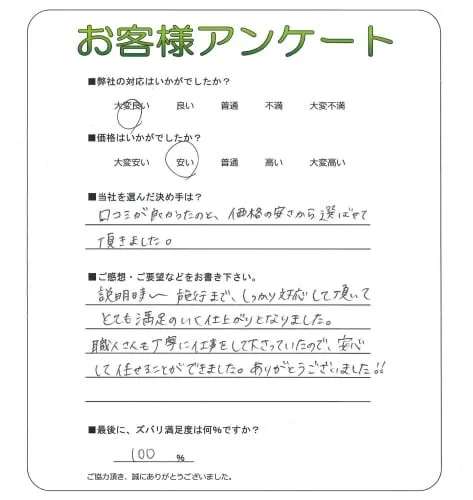 お客様アンケート
■弊社の対応はいかがでしたか？
大変良い 良い 普通 不満 大変不満
■価格はいかがでしたか？
大変安い 安い 普通 高い 大変高い
■当社を選んだ決め手は？
口コミが良かったのと、価格の安さから選ばせて
頂きました。
■ご感想・ご要望などをお書き下さい。
説明時〜施行まで、しっかり対応して頂いて
とても満足のいく仕上がりとなりました。
職人さんも丁寧に仕事をして下さっていたので、安心
して任せることができました。ありがとうございました!!
■最後に、ズバリ満足度は何%ですか？
100 %
ご協力頂き、誠にありがとうございました。